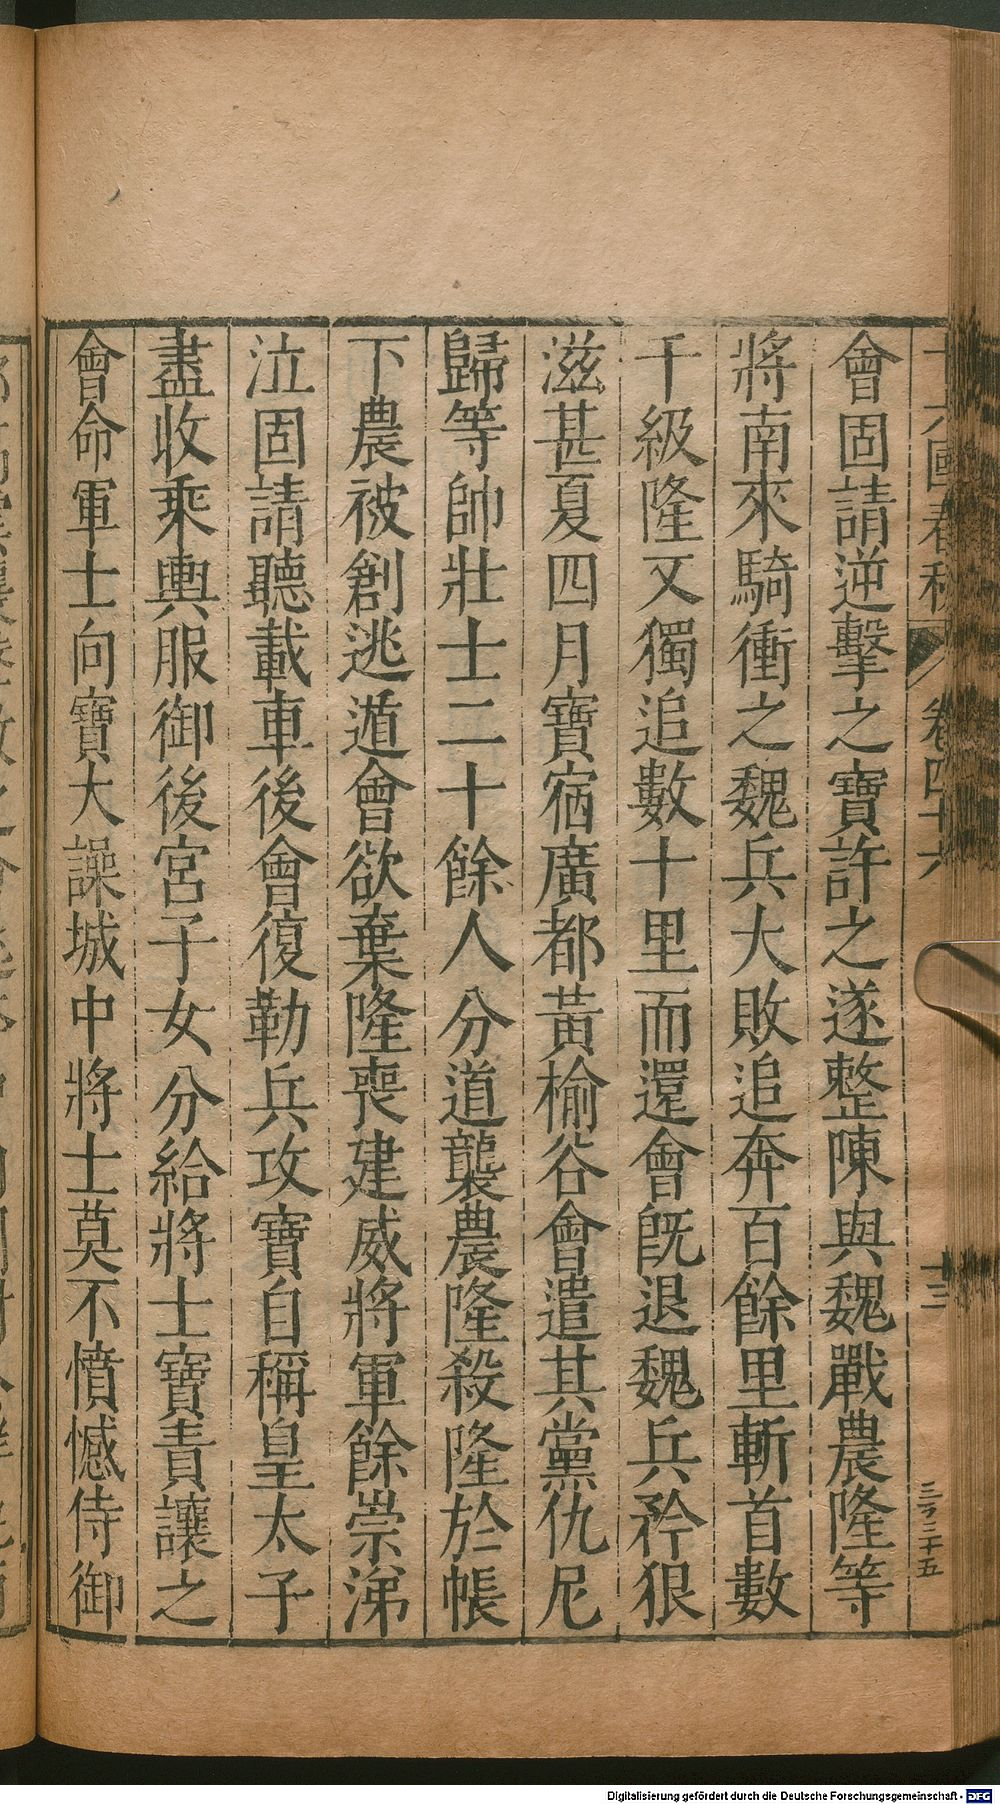 十六國春秋 卷四十六 十三 三百二十五
會固請逆擊之寶許之遂整陳與魏戰農隆等
將南來騎衝之魏兵大敗追奔百餘里斬首數
千級隆又獨追數十里而還會旣退魏兵矜狠
滋甚夏四月寶宿廣都黃榆谷會遣其黨仇尼
歸等帥壯士二十餘人分道襲農隆殺隆於帳
下農被創逃遁會欲棄隆喪建威將軍餘崇涕
泣固請聽載車後會復勒兵攻寶自稱皇太子
盡收乘輿服御後宮子女分給將士寶責讓之
會命軍士向寶大譟城中將士莫不憤憾侍御
Digitalisierung gefördert durch die Deutsche Forschungsgemeinschaft - DFG